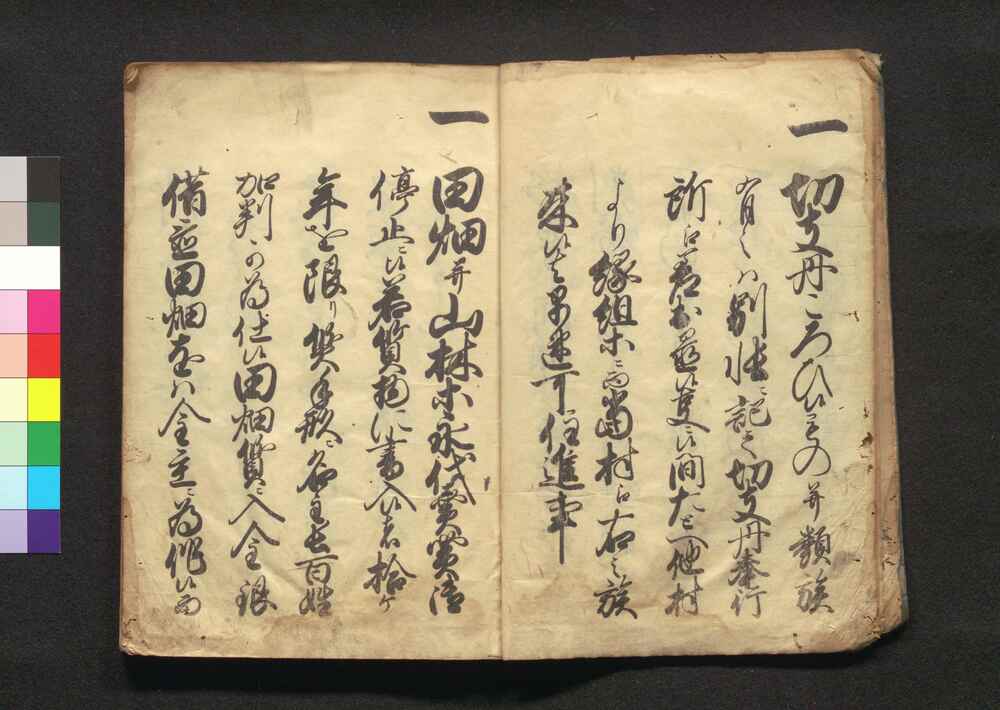 一 切支丹ころひ候もの并類族
有之ハ別帖ニ記之切支丹奉行
所江差出慈候儀ニ候間たとへ他村
より縁組等ニ而当村江右之族
来候ハヽ早速可注進事
一 田畑并山林等永代売買御
停止ニ候若質物ニ書入候者拾ケ
年を限り質手形ニ名主五百姓
加判可為仕候田畑質ニ入金銀
借応田畑をハ金主ニ為作候而